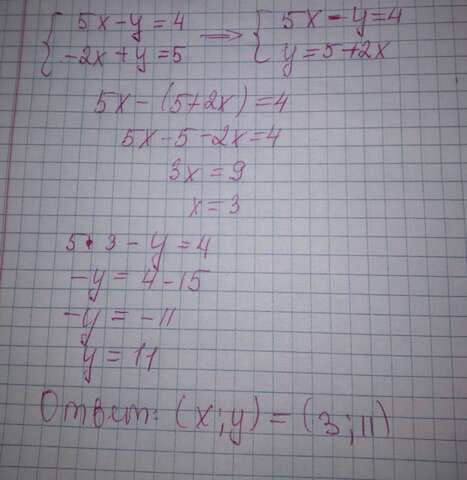 { 5x - y = 4 ⟹ { 5x - y = 4
{ -2x + y = 5 { y = 5 + 2x
5x - (5 + 2x) = 4
5x - 5 - 2x = 4
3x = 9
x = 3
5 · 3 - y = 4
-y = 4 - 15
-y = -11
y = 11
Ответ: (x; y) = (3; 11)